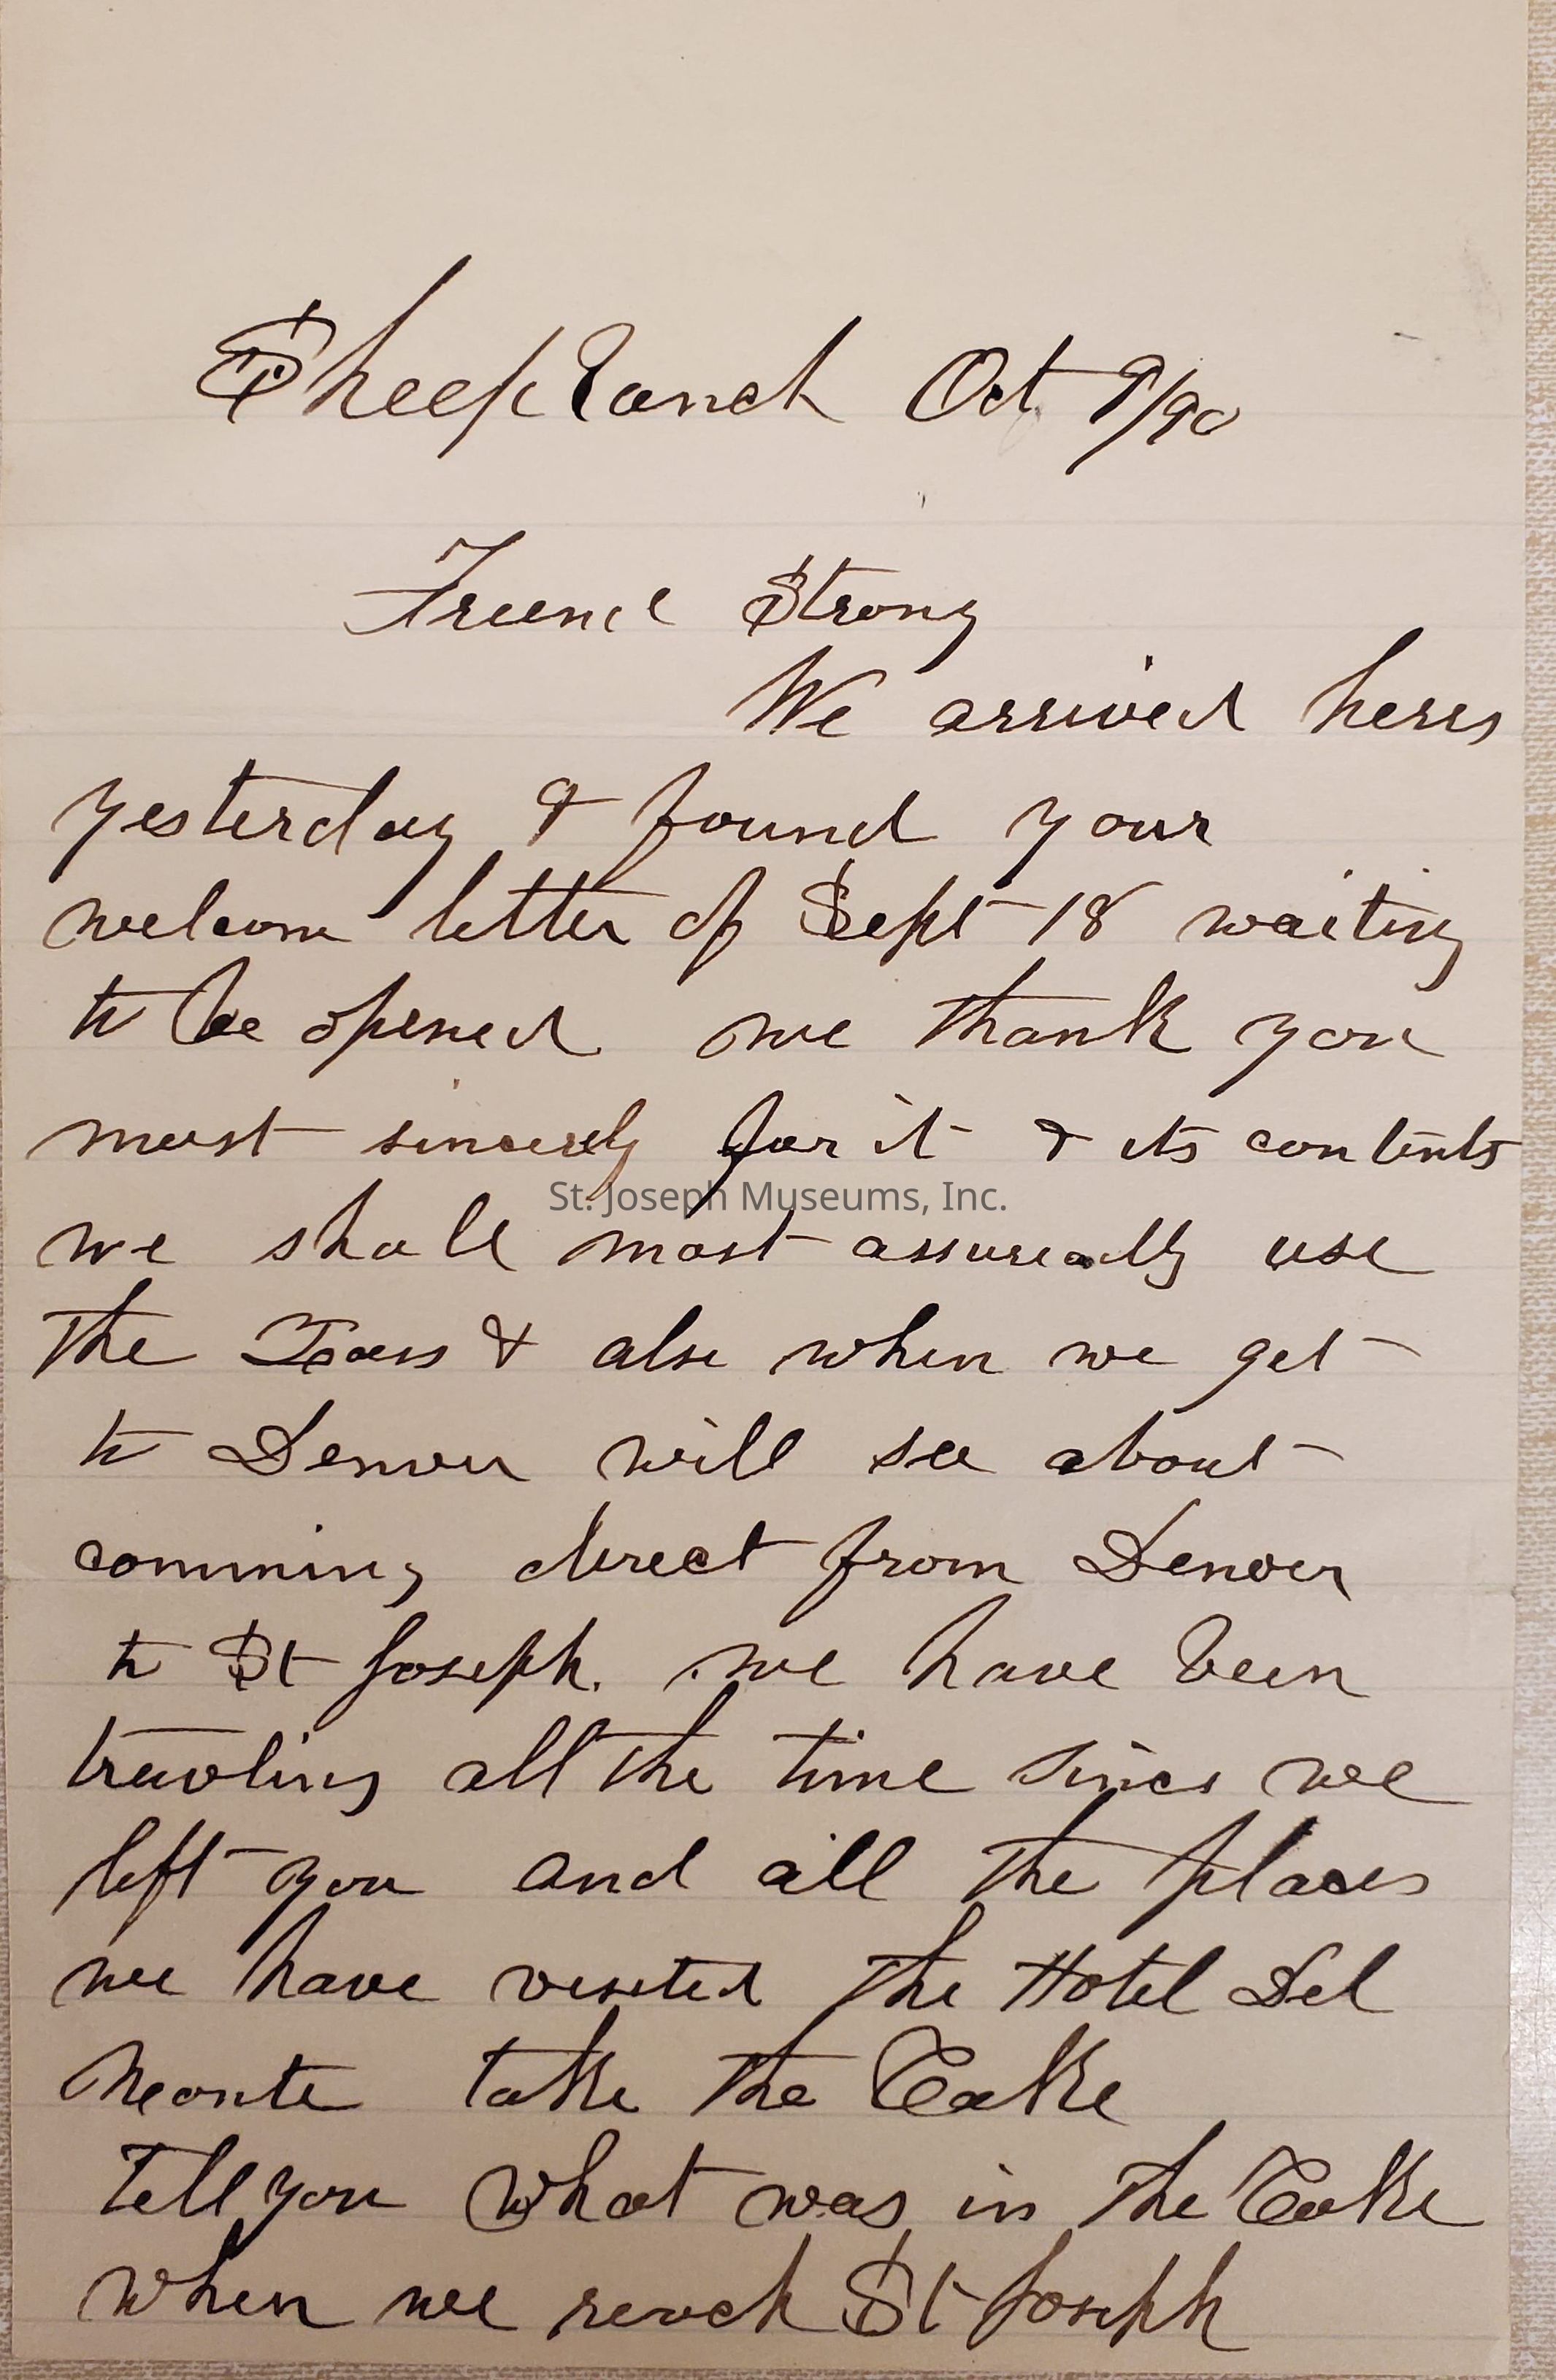 Sheep Ranch Oct 9/90
Friend Strong
We arrived here
yesterday & found your
welcome letter of Sept 18 waiting
to be opened we thank you
most sincerely for it & its contents
St. Joseph Museums, Inc.
we shall most assuredly use
the & also when we get
to Denver will see about
comming direct from Denver
to St Joseph. we have been
travling all the time since we
left you and all the places
we have visited the Hotel Del
Monte take the Cake
tell you what was in the Cake
when we reach St Joseph